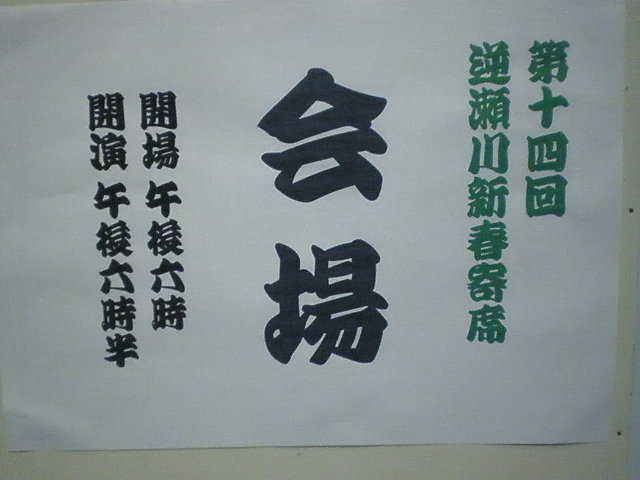 第十四回
逆瀬川新春寄席
会場
開場 午後六時
開演 午後六時半